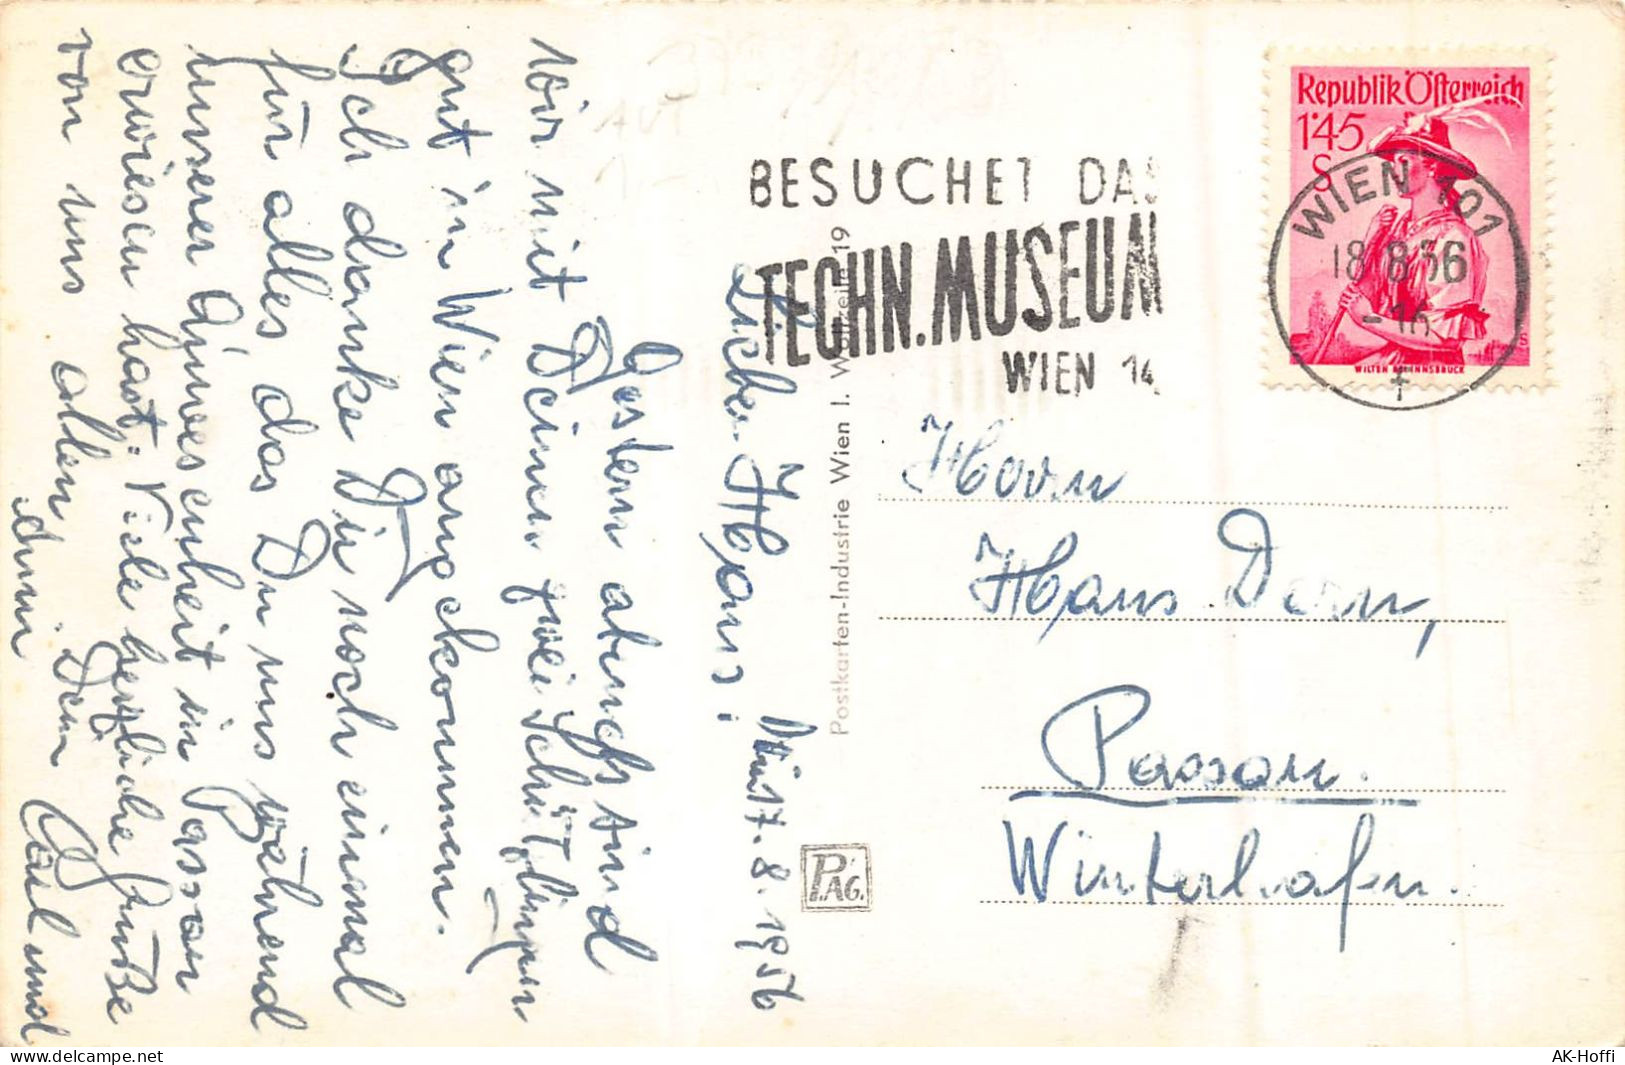 Lieber Hans! 17.8.1956
Gestern abends sind
wir mit Deinen zwei Schützlingen
gut in Wien angekommen.
Ich danke Dir noch einmal
für alles das Du uns während
unserer Anwesenheit in Passau
erwiesen hast. Viele herzliche Grüße
von uns allen Dein Karl und
Anni
Postkarten-Industrie Wien I. Wollzeile 19
P.AG.
BESUCHET DAS
TECHN. MUSEUM
WIEN 14
Republik Österreich
1·45
S
WILTEN B. INNSBRUCK
WIEN 101
18.8.56
-16
Herrn
Hans Dorn,
Passau.
Winterhafen.
von uns
AK-Hoffi
www.delcampe.net